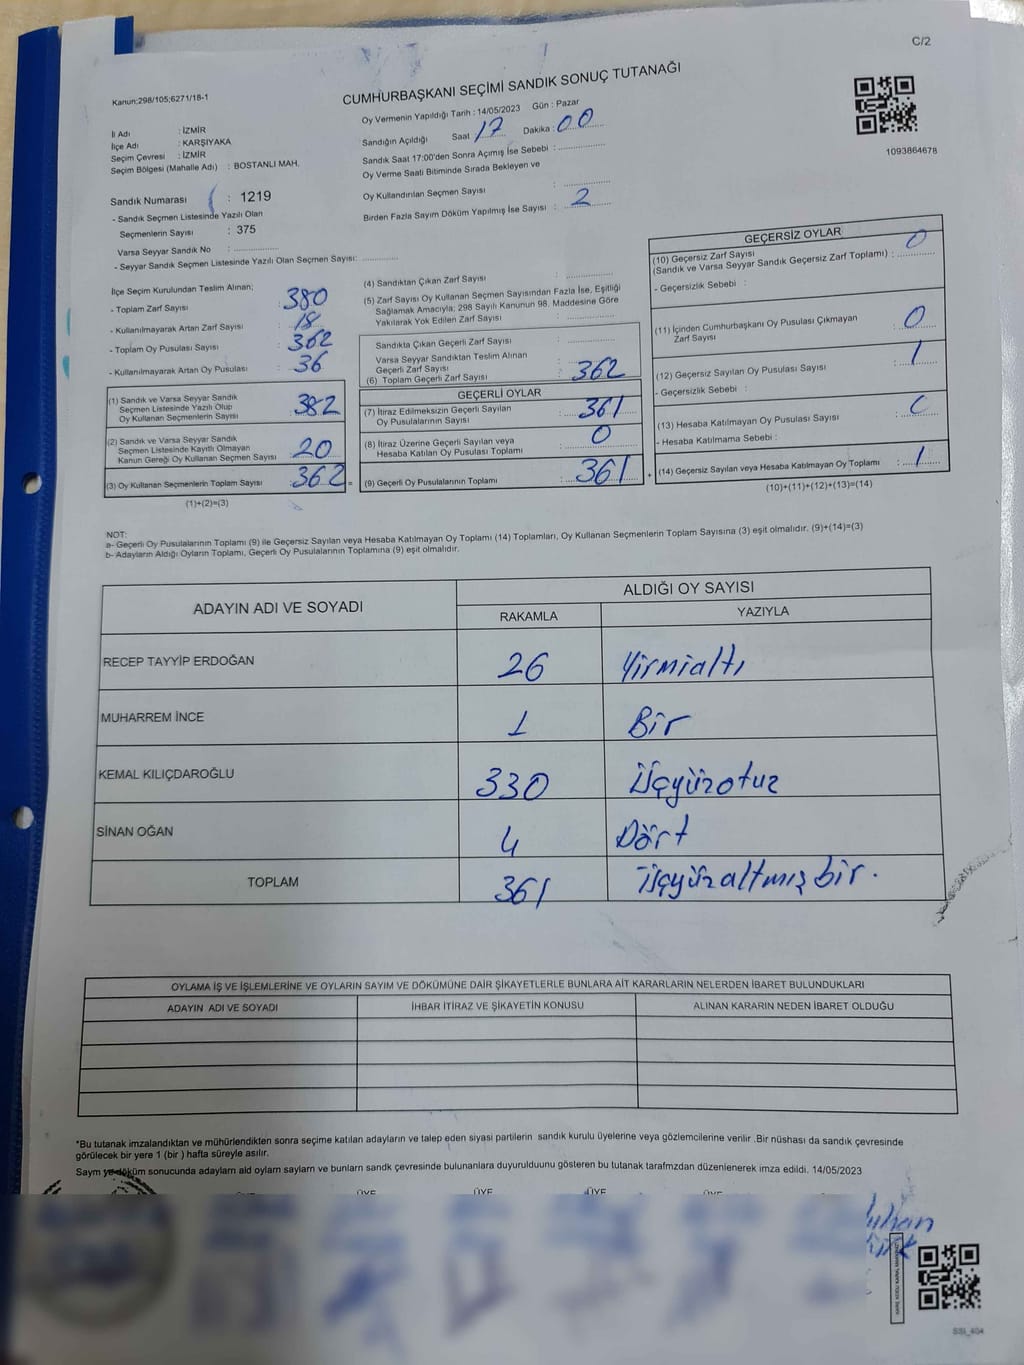 C/2
Kanun:298/105;6271/18-1
CUMHURBAŞKANI SEÇİMİ SANDIK SONUÇ TUTANAĞI
Oy Vermenin Yapıldığı Tarih : 14/05/2023 Gün : Pazar
İl Adı : İZMİR
İlçe Adı : KARŞIYAKA
Seçim Çevresi : İZMİR
Seçim Bölgesi (Mahalle Adı) : BOSTANLI MAH.
Sandık Numarası : 1219
- Sandık Seçmen Listesinde Yazılı Olan
Seçmenlerin Sayısı : 375
Varsa Seyyar Sandık No : ................
- Seyyar Sandık Seçmen Listesinde Yazılı Olan Seçmen Sayısı: .............
Sandığın Açıldığı Saat 17 Dakika : 00
Sandık Saat 17:00'den Sonra Açımış İse Sebebi : ................
Oy Verme Saati Bitiminde Sırada Bekleyen ve
Oy Kullandırılan Seçmen Sayısı : ................
Birden Fazla Sayım Döküm Yapılmış İse Sayısı : 2
1093864678
İlçe Seçim Kurulundan Teslim Alınan;
- Toplam Zarf Sayısı : 380
- Kullanılmayarak Artan Zarf Sayısı : 18
- Toplam Oy Pusulası Sayısı : 362
- Kullanılmayarak Artan Oy Pusulası : 36
(1) Sandık ve Varsa Seyyar Sandık
Seçmen Listesinde Yazılı Olup
Oy Kullanan Seçmenlerin Sayısı : 382
(2) Sandık ve Varsa Seyyar Sandık
Seçmen Listesinde Kayıtlı Olmayan
Kanun Gereği Oy Kullanan Seçmen Sayısı : 20
(3) Oy Kullanan Seçmenlerin Toplam Sayısı : 362 =
(1)+(2)=(3)
(4) Sandıktan Çıkan Zarf Sayısı : ................
(5) Zarf Sayısı Oy Kullanan Seçmen Sayısından Fazla İse, Eşitliği
Sağlamak Amacıyla; 298 Sayılı Kanunun 98. Maddesine Göre
Yakılarak Yok Edilen Zarf Sayısı : ................
Sandıkta Çıkan Geçerli Zarf Sayısı : ................
Varsa Seyyar Sandıktan Teslim Alınan
Geçerli Zarf Sayısı : ................
(6) Toplam Geçerli Zarf Sayısı : 362
GEÇERLİ OYLAR
(7) İtiraz Edilmeksizin Geçerli Sayılan
Oy Pusulasının Sayısı : 361
(8) İtiraz Üzerine Geçerli Sayılan veya
Hesaba Katılan Oy Pusulası Toplamı : 0
(9) Geçerli Oy Pusulalarının Toplamı : 361 +
GEÇERSİZ OYLAR
(10) Geçersiz Zarf Sayısı
(Sandık ve Varsa Seyyar Sandık Geçersiz Zarf Toplamı) : 0
- Geçersizlik Sebebi :
(11) İçinden Cumhurbaşkanı Oy Pusulası Çıkmayan
Zarf Sayısı : 0
(12) Geçersiz Sayılan Oy Pusulası Sayısı : 1
- Geçersizlik Sebebi :
(13) Hesaba Katılmayan Oy Pusulası Sayısı :
- Hesaba Katılmama Sebebi :
(14) Geçersiz Sayılan veya Hesaba Katılmayan Oy Toplamı : 1
(10)+(11)+(12)+(13)=(14)
NOT:
a- Geçerli Oy Pusulalarının Toplamı (9) ile Geçersiz Sayılan veya Hesaba Katılmayan Oy Toplamı (14) Toplamları, Oy Kullanan Seçmenlerin Toplam Sayısına (3) eşit olmalıdır. (9)+(14)=(3)
b- Adayların Aldığı Oyların Toplamı, Geçerli Oy Pusulalarının Toplamına (9) eşit olmalıdır.
ADAYIN ADI VE SOYADI
ALDIĞI OY SAYISI
RAKAMLA YAZIYLA
RECEP TAYYİP ERDOĞAN 26 Yirmialtı
MUHARREM İNCE 1 Bir
KEMAL KILIÇDAROĞLU 330 Üçyüzotuz
SİNAN OĞAN 4 Dört
TOPLAM 361 üçyüzaltmış bir.
OYLAMA İŞ VE İŞLEMLERİNE VE OYLARIN SAYIM VE DÖKÜMÜNE DAİR ŞİKAYETLERLE BUNLARA AİT KARARLARIN NELERDEN İBARET BULUNDUKLARI
ADAYIN ADI VE SOYADI İHBAR İTİRAZ VE ŞİKAYETİN KONUSU ALINAN KARARIN NEDEN İBARET OLDUĞU
*Bu tutanak imzalandıktan ve mühürlendikten sonra seçime katılan adayların ve talep eden siyasi partilerin sandık kurulu üyelerine veya gözlemcilerine verilir .Bir nüshası da sandık çevresinde
görülecek bir yere 1 (bir ) hafta süreyle asılır.
Sayım ve döküm sonucunda adayların ald oyların sayların ve bunların sandk çevresinde bulunanlara duyurulduunu gösteren bu tutanak tarafmzdan düzenlenerek imza edildi. 14/05/2023
ÜYE ÜYE ÜYE ÜYE
SSI_404